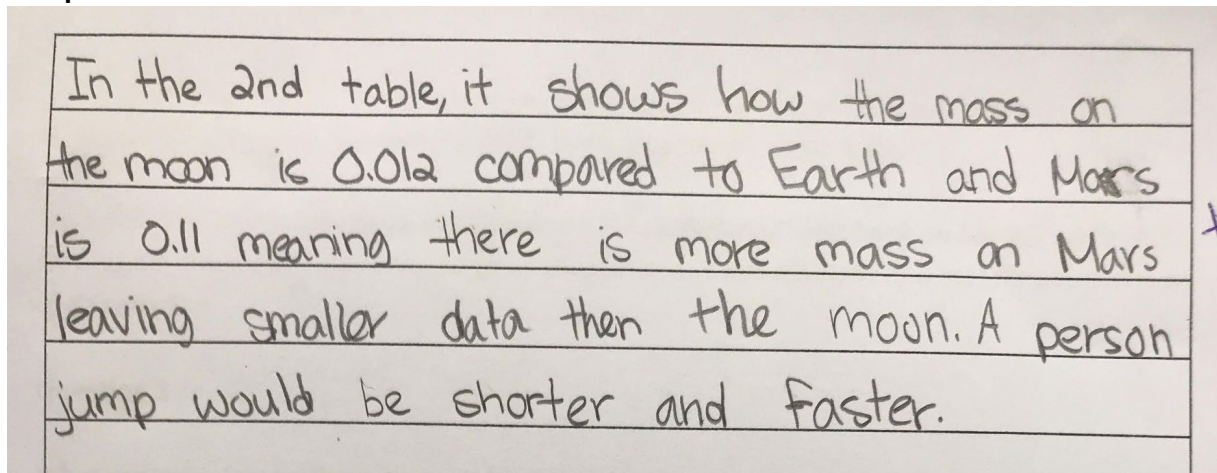 In the 2nd table, it shows how the mass on
the moon is 0.012 compared to Earth and Mars
is 0.11 meaning there is more mass on Mars
leaving smaller data then the moon. A person
jump would be shorter and faster.